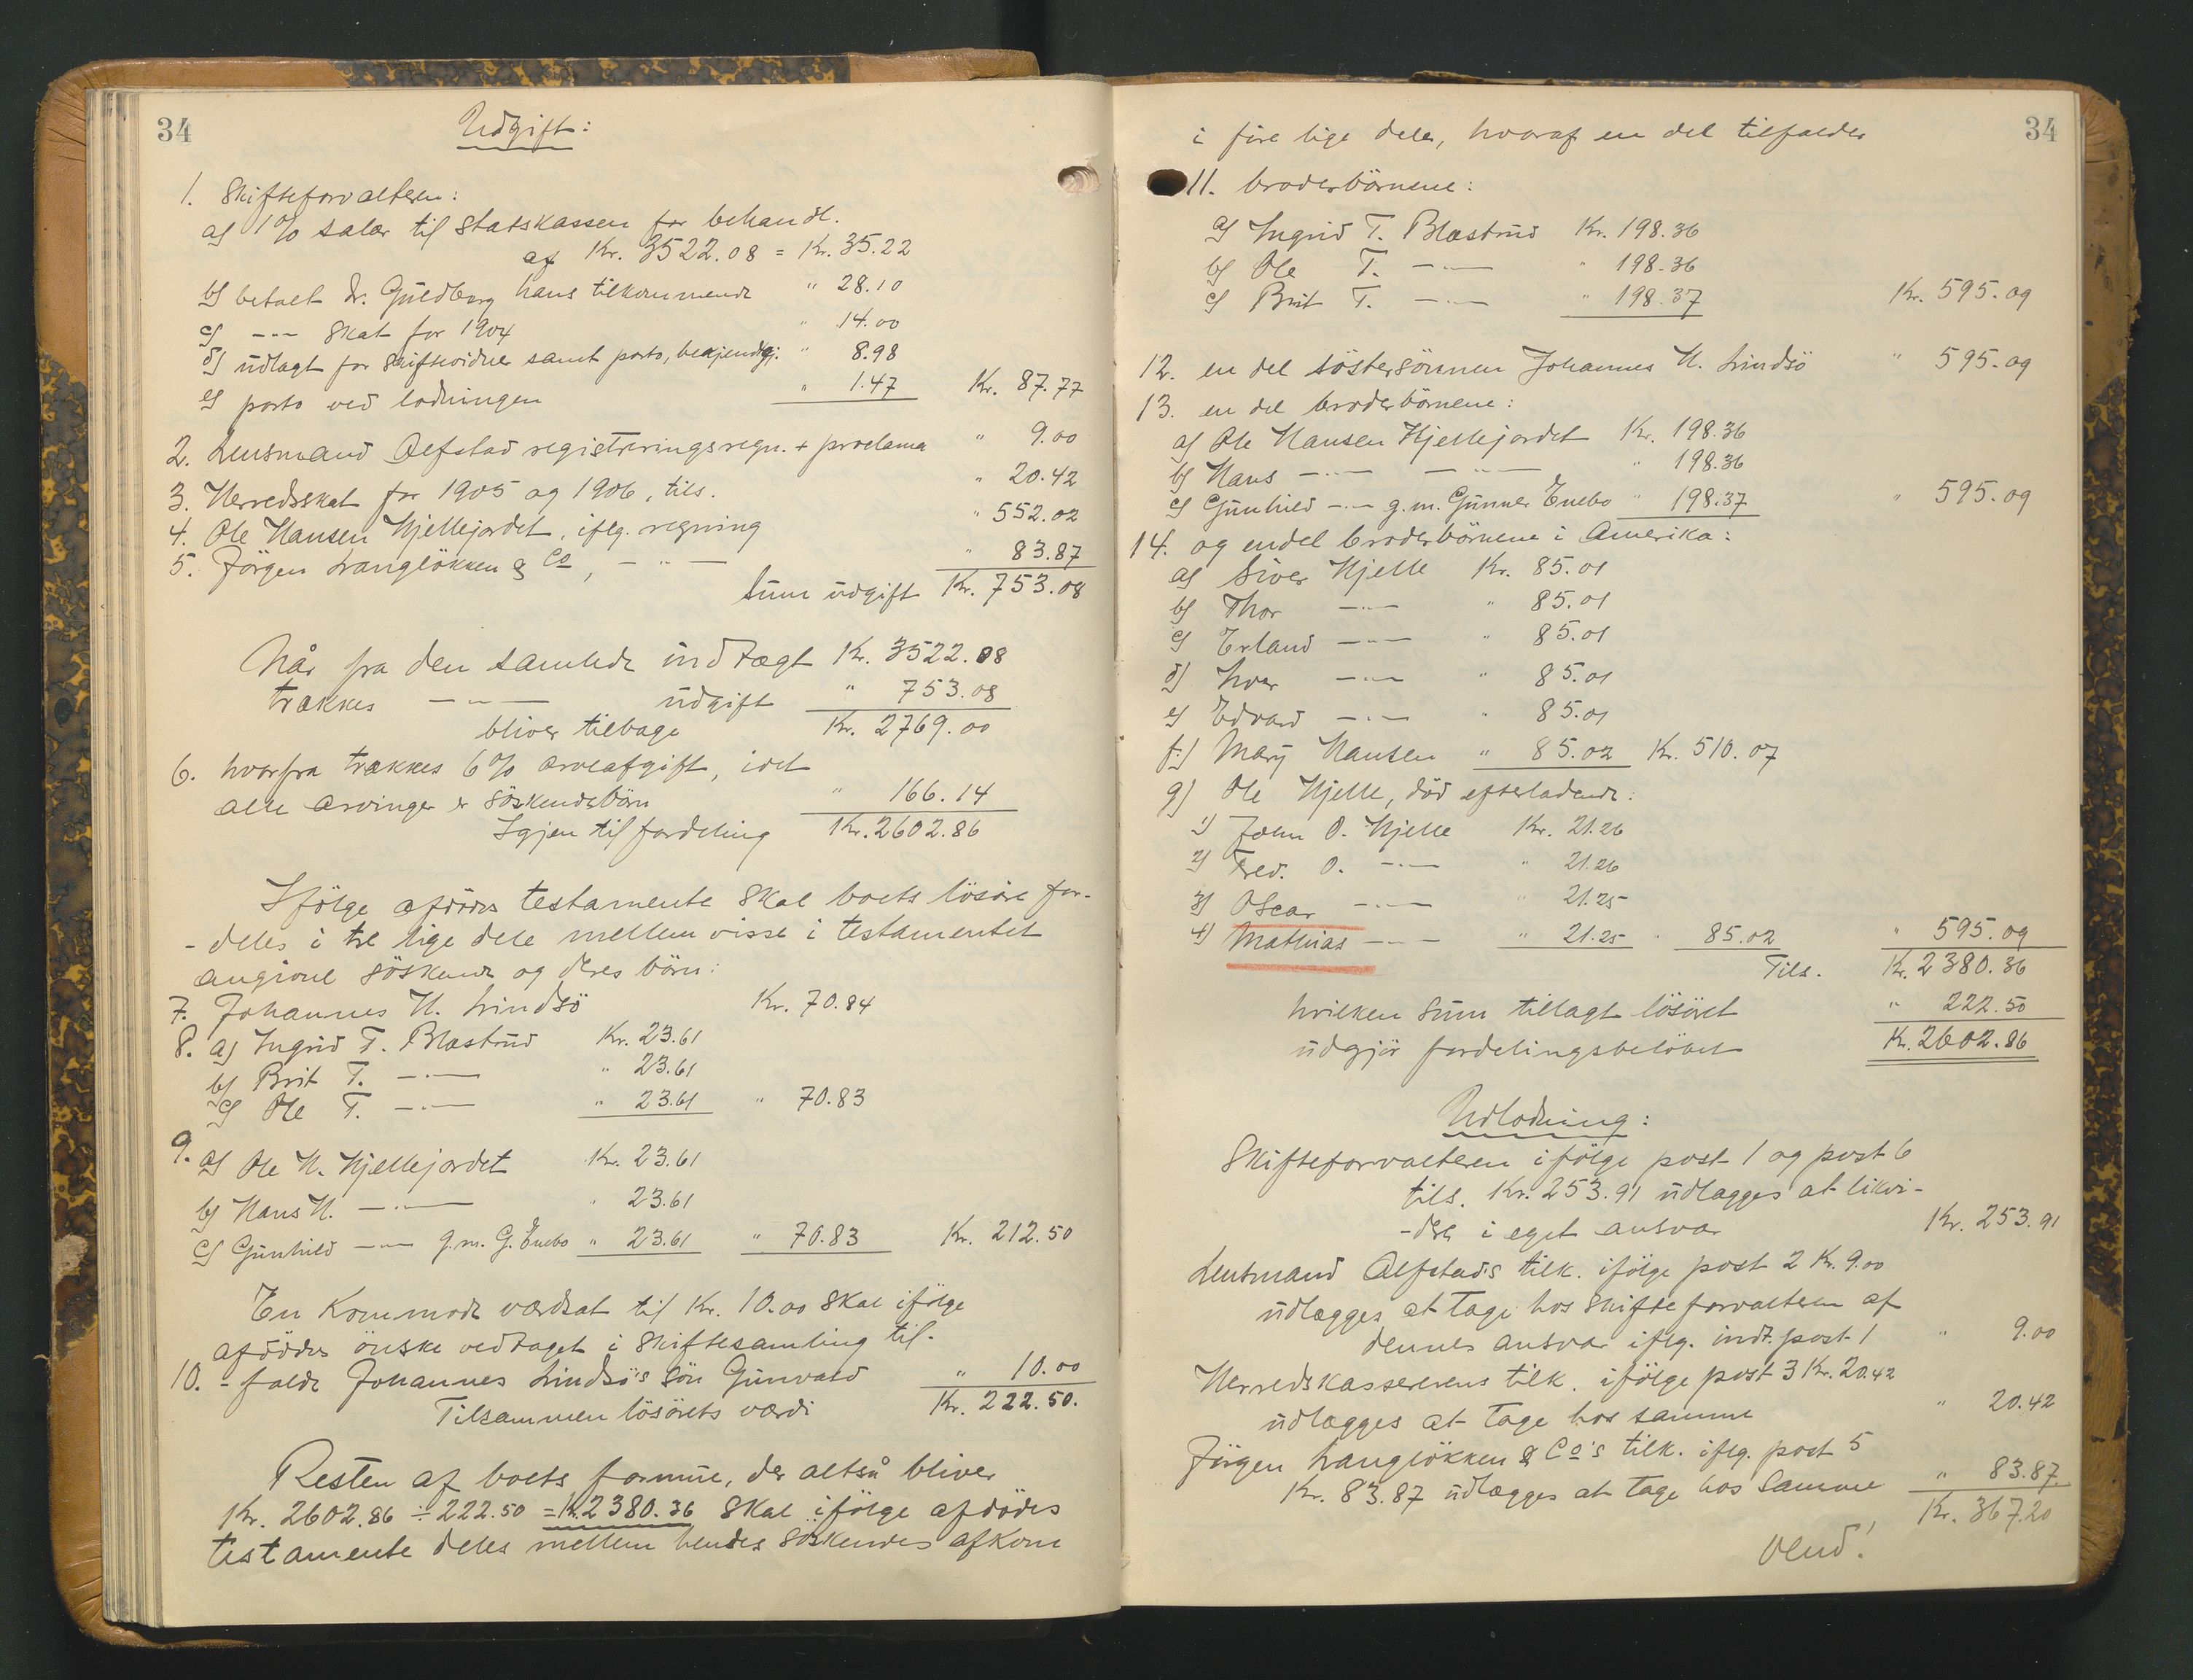 34
Udgift:
1. Skifteforvalteren:
a) 1% salær til statskassen for behandl.
af Kr. 3522.08 = Kr. 35.22
b) betalt dr. Güldberg hans tilkommende " 28.10
c) -"- skat for 1904 " 14.00
d) udlagt for skiftevidner samt porto, bekjendtgj. " 8.98
e) porto ved lodningen " 1.47 Kr. 87.77
2. Lensmand Alfstad registreringsregn. + proclama " 9.00
3. Herredsskat for 1905 og 1906, tils. " 20.42
4. Ole Hansen Hjellejordet, iflg. regning " 552.02
5. Jörgen Langløkken & Co, -"- " 83.87
Sum udgift Kr. 753.08
Når fra den samlede indtægt Kr. 3522.08
trækkes -"- udgift " 753.08
bliver tilbage Kr. 2769.00
6. hvorfra trækkes 6% arveafgift, idet
alle arvinger er söskendebörn " 166.14
Igjen til fordeling Kr. 2602.86
Ifölge afdödes testamente skal boets lösöre for-
-deles i tre lige dele mellem visse i testamentet
angivne söskende og deres börn:
7. Johannes H. Lindsö Kr. 70.84
8. a) Ingrid T. Blæstrud Kr. 23.61
b) Brit T. -"- " 23.61
c) Ole T. -"- " 23.61 " 70.83
9. a) Ole H. Hjellejordet Kr. 23.61
b) Hans H. -"- " 23.61
c) Gunhild -"- g.m. G. Enebo " 23.61 " 70.83 Kr. 212.50
En Kommode værdsat til Kr. 10.00 skal ifölge
afdödes önske vedtaget i skiftesamling til-
10. -falde Johannes Lindsö's sön Gunvald " 10.00
Tilsammen lösörets værdi Kr. 222.50.
Resten af boets formue, der altså bliver
Kr. 2602.86 ÷ 222.50 = Kr. 2380.36 skal ifölge afdödes
testamente deles mellem hendes söskendes afkom
34
i fire lige deler, hvoraf en del tilfalder
11. broderbörnene:
a) Ingrid T. Blæstrud Kr. 198.36
b) Ole T. -"- " 198.36
c) Brit T. -"- " 198.37 Kr. 595.09
12. en del söstersönnen Johannes H. Lindsö " 595.09
13. en del broderbörnene:
a) Ole Hansen Hjellejordet Kr. 198.36
b) Hans -"- -"- " 198.36
c) Gunhild -"- g.m. Gunner Enebo " 198.37 " 595.09
14. og endel broderbörnene i Amerika:
a) Siver Hjelle Kr. 85.01
b) Thor -"- " 85.01
c) Erland -"- " 85.01
d) Iver -"- " 85.01
e) Edvard -"- " 85.01
f) Mary Hansen " 85.02 Kr. 510.07
g) Ole Hjelle, död efterladende:
1) John O. Hjelle Kr. 21.26
2) Fred. O. -"- " 21.26
3) Oscar -"- " 21.25
4) Mathias -"- " 21.25 " 85.02 " 595.09
Tils. Kr. 2380.36
hvilken sum tillagt lösöret " 222.50
udgjör fordelingsbelöbet Kr. 2602.86
Udlodning:
Skifteforvalteren ifölge post 1 og post 6
tils. Kr. 253.91 udlægges at likvi-
-dere i eget ansvar Kr. 253.91
Lensmand Alfstads tilk. ifölge post 2 Kr. 9.00
udlægges at tage hos skifteforvalteren af
dennes ansvar iflg. indt. post 1 " 9.00
Herredskassererens tilk. ifölge post 3 Kr. 20.42
udlægges at tage hos samme " 20.42
Jörgen Langløkken & Co's tilk. iflg. post 5
Kr. 83.87 udlægges at tage hos samme " 83.87
Kr. 367.20
Vend!